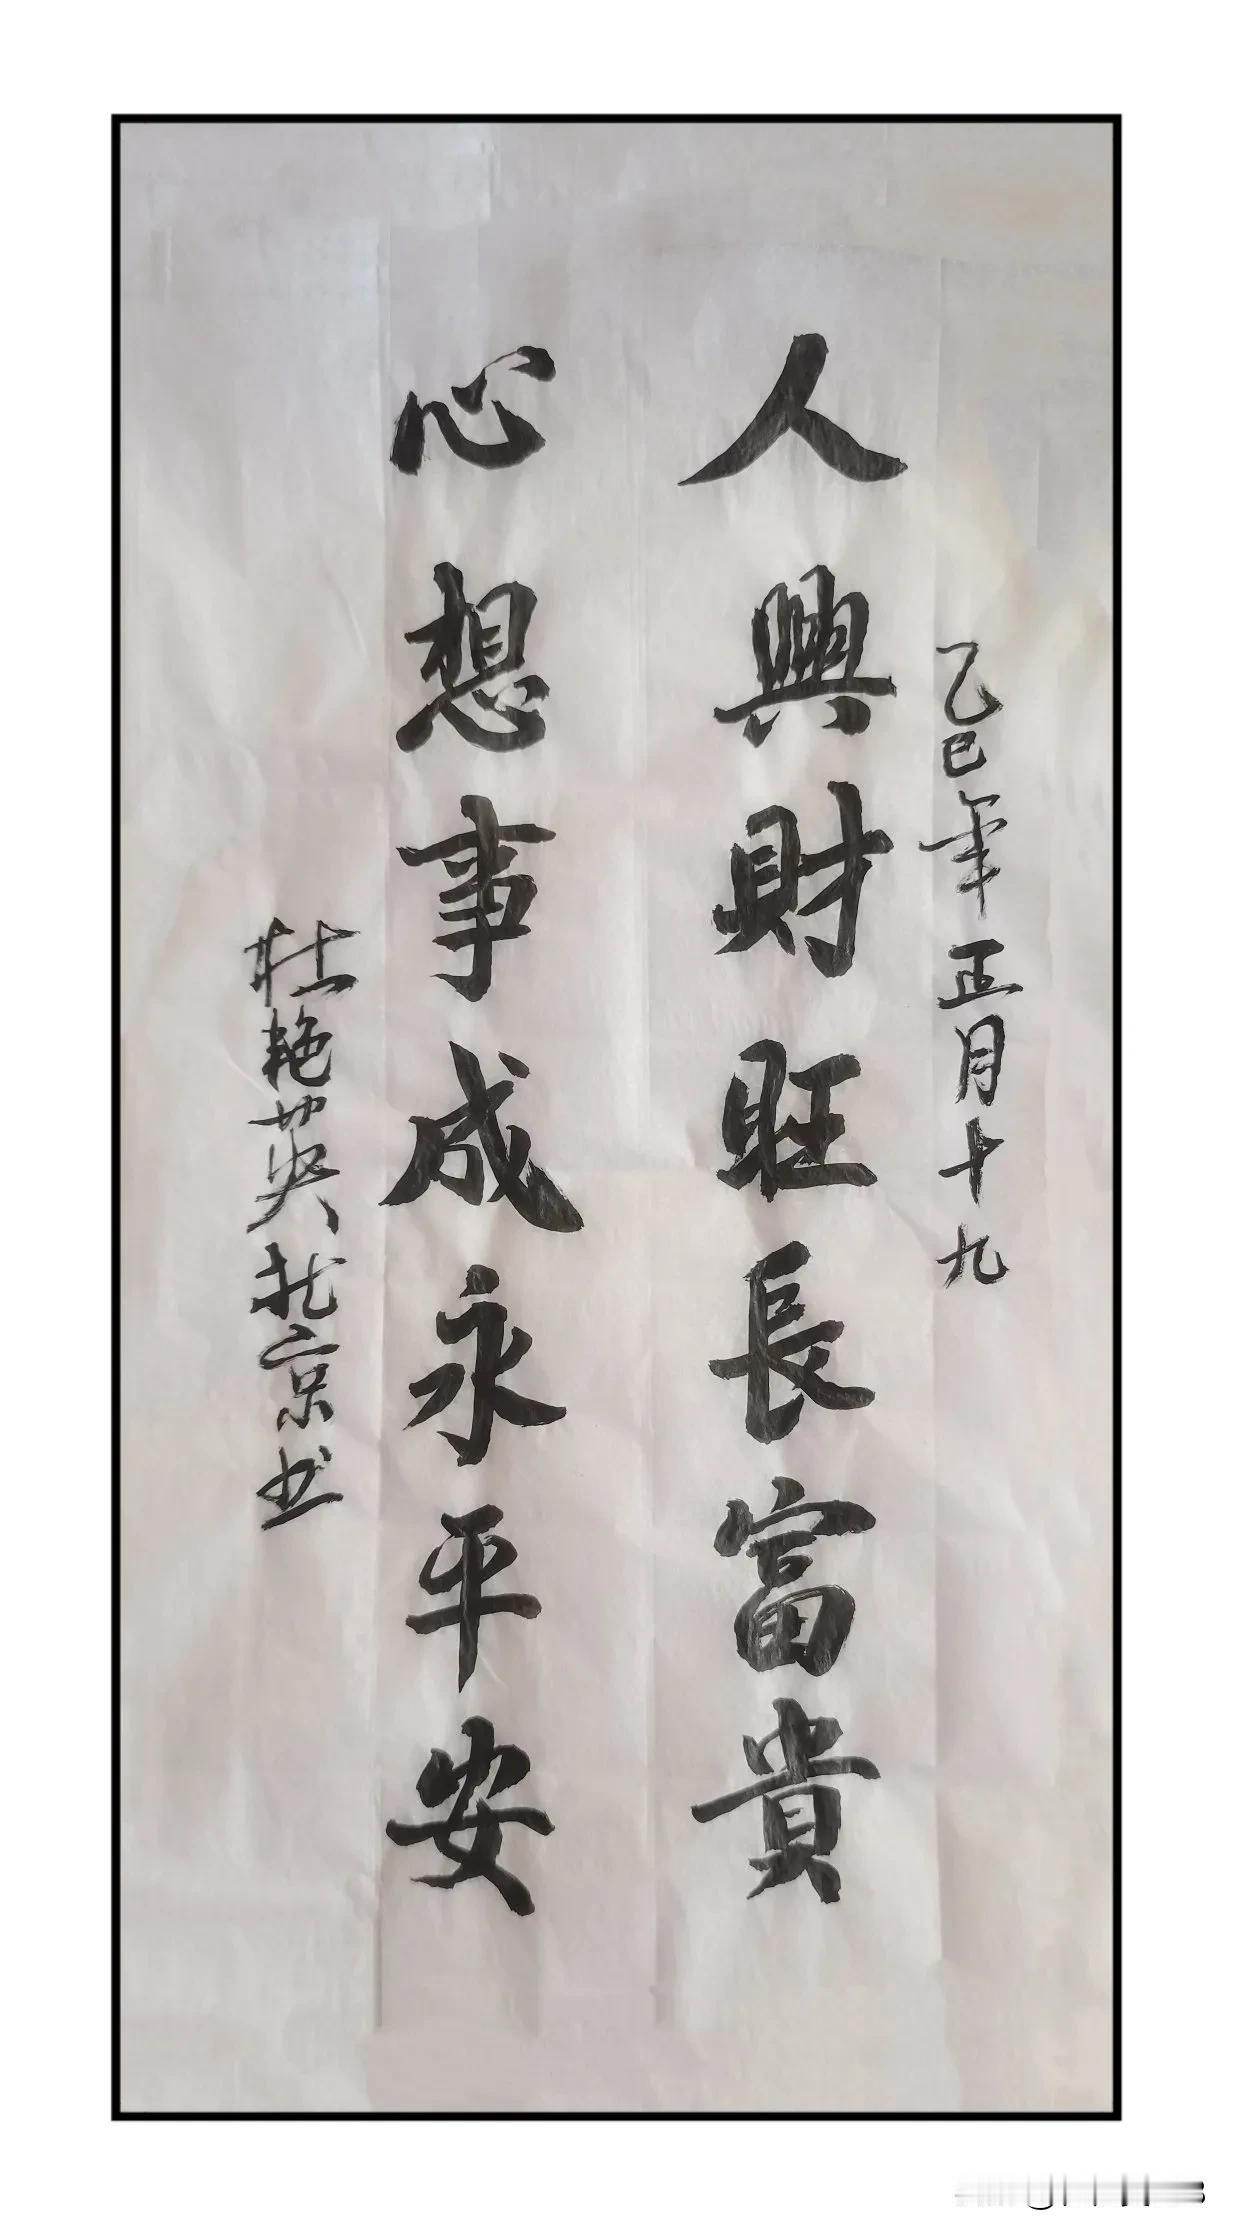 乙巳年正月十九
人興財旺長富貴
心想事成永平安
杜艳英北京书